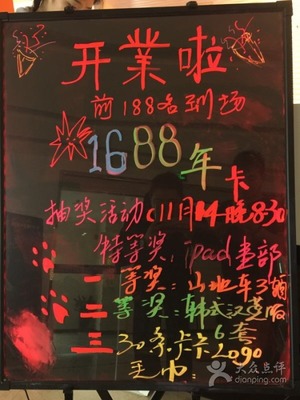 开業啦
前188名到场
1688年
卡
抽奖活动(11月14晚8:30
特等奖:ipad壹部
一等奖:山地车3辆
二等奖:韩式汉蒸服
6套
三
30条
毛巾:
大众点评
dianping.com